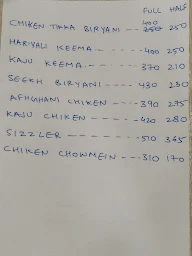 FULL HALF
CHIKEN TIKKA BIRYANI --- 400 250 250
HARYALI KEEMA ----- 400 250
KAJU KEEMA ------ 370 210
SEEKH BIRYANI ---- 430 230
AFHGHANI CHIKEN --- 390 275
KAJU CHIKEN ------ 420 280
SIZZLER ------- 510 365
CHIKEN CHOWMEIN --- 310 170